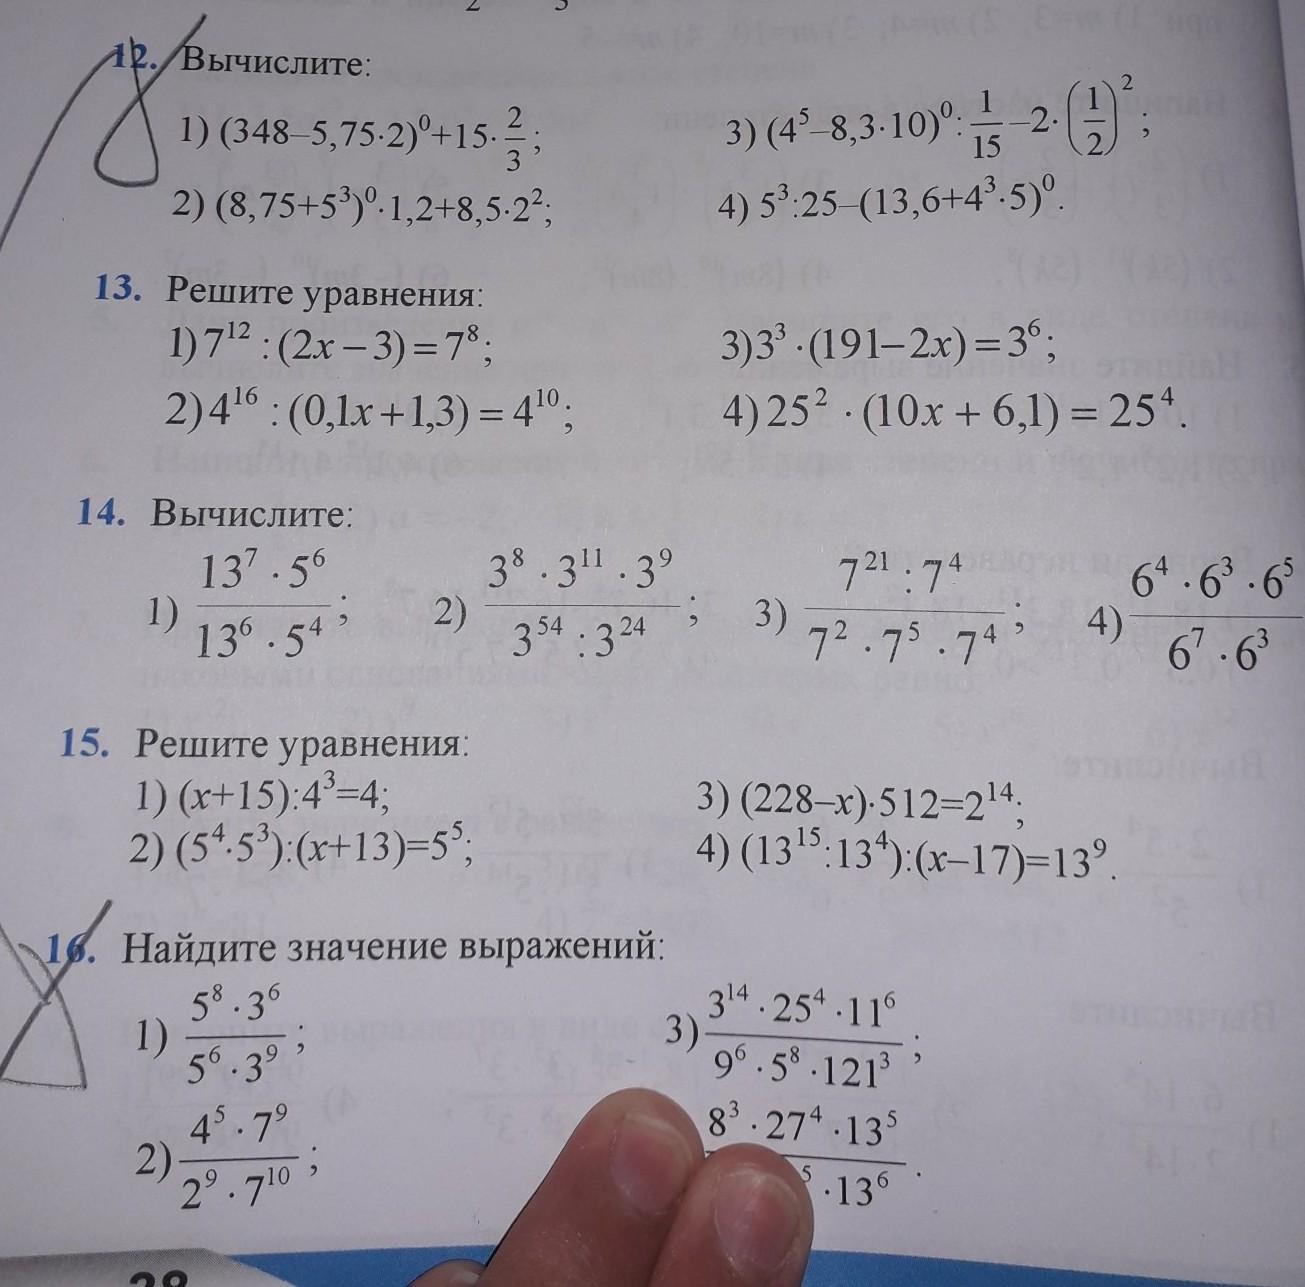 12. Вычислите:
1) (348–5,75·2)⁰+15·2/3;
3) (4⁵–8,3·10)⁰:1/15–2·(1/2)²;
2) (8,75+5³)⁰·1,2+8,5·2²;
4) 5³:25–(13,6+4³·5)⁰.
13. Решите уравнения:
1) 7¹² : (2x – 3) = 7⁸;
3) 3³ · (191–2x) = 3⁶;
2) 4¹⁶ : (0,1x + 1,3) = 4¹⁰;
4) 25² · (10x + 6,1) = 25⁴.
14. Вычислите:
1) (13⁷ · 5⁶)/(13⁶ · 5⁴);
2) (3⁸ · 3¹¹ · 3⁹)/(3⁵⁴ : 3²⁴);
3) (7²¹ : 7⁴)/(7² · 7⁵ · 7⁴);
4) (6⁴ · 6³ · 6⁵)/(6⁷ · 6³)
15. Решите уравнения:
1) (x+15):4³=4;
3) (228–x)·512=2¹⁴;
2) (5⁴·5³):(x+13)=5⁵;
4) (13¹⁵:13⁴):(x–17)=13⁹.
16. Найдите значение выражений:
1) (5⁸ · 3⁶)/(5⁶ · 3⁹);
3) (3¹⁴ · 25⁴ · 11⁶)/(9⁶ · 5⁸ · 121³);
2) (4⁵ · 7⁹)/(2⁹ · 7¹⁰);
(8³ · 27⁴ · 13⁵)/(⁵ · 13⁶).